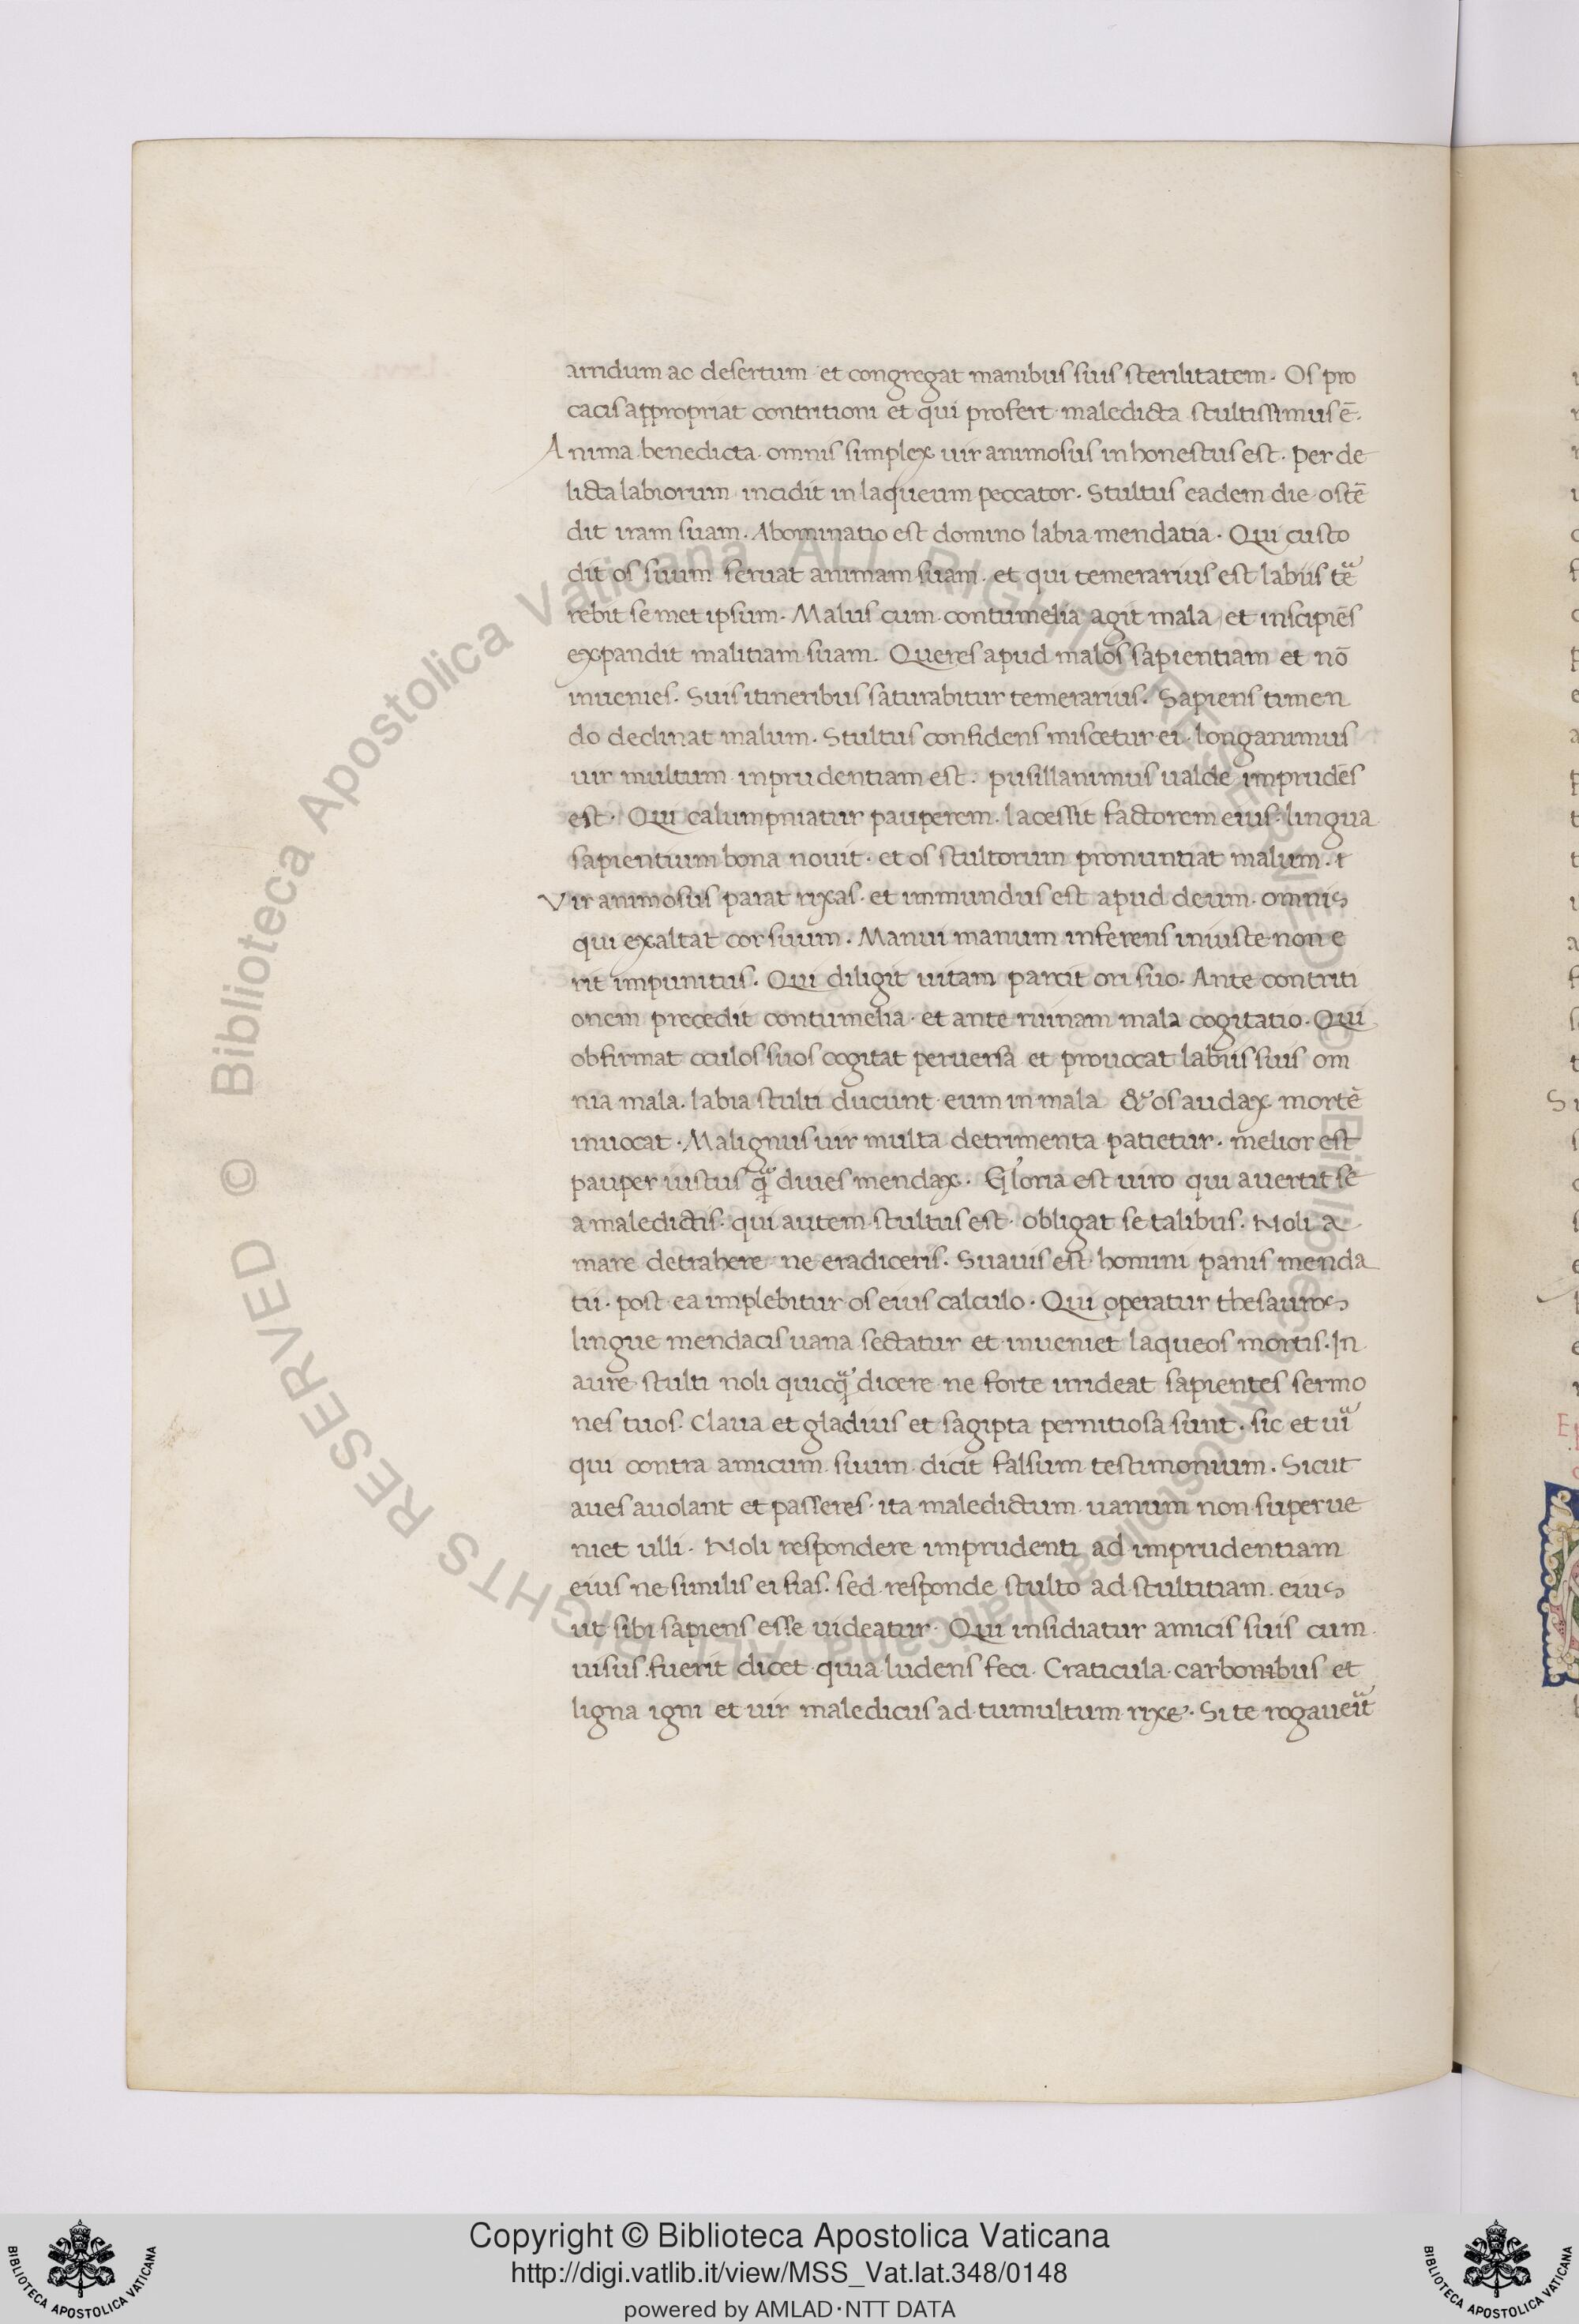 arridum ac desertum et congregat manibus suis sterilitatem. Os pro
cacis appropriat contritioni et qui profert maledicta stultissimus ē.
Anima benedicta omnis simplex uir animosus inhonestus est. Per de
licta labiorum incidit in laqueum peccator. Stultus eadem die ostē
dit iram suam. Abominatio est domino labia mendatia. Qui custo
dit os suum seruat animam suam. et qui temerarius est labiis te
rebit semet ipsum. Malus cum contumelia agit mala, et inscipiēs
expandit malitiam suam. Queres apud malos sapientiam et nō
inuenies. Suis itineribus saturabitur temerarius. Sapiens timen
do declinat malum. Stultus confidens miscetur ei. longanimus
uir multum inprudentiam est. pusillanimus ualde imprudēs
est. Qui calumpniatur pauperem. lacessit factorem eius. lingua
sapientium bona nouit. et os stultorum pronuntiat malum.
Vir animosus parat rixas. et immundus est apud deum. omnis
qui exaltat cor suum. Manui manum inferens iniuste non e
rit impunitus. Qui diligit uitam parcit ori suo. Ante contriti
onem precedit contumelia. et ante ruinam mala cogitatio. Qui
obfirmat oculos suos cogitat peruersa et prouocat labiis suis om
nia mala. labia stulti ducunt eum in mala & os audax mortē
inuocat. Malignus uir multa detrimenta patietur. melior est
pauper iustus qͣ diues mendax. Gloria est uiro qui auertit se
a maledictis. qui autem stultus est obligat se talibus. Noli a
mare detrahere ne eradiceris. Suauis est homini panis menda
tii. post ea implebitur os eius calculo. Qui operatur thesauros
lingue mendacis uana sectatur et inueniet laqueos mortis. In
aure stulti noli quicqͣ dicere ne forte irrideat sapientes sermo
nes tuos. Claua et gladius et sagipta pernitiosa sunt. sic et ui
qui contra amicum suum dicit falsum testimonium. Sicut
aues auolant et passeres. ita maledictum uanum non superue
niet ulli. Noli respondere imprudenti ad imprudentiam
eius ne similis ei fias. sed responde stulto ad stultitiam eius
ut sibi sapiens esse uideatur. Qui insidiatur amicis suis cum
uisus fuerit dicet quia ludens feci. Craticula carbonibus et
ligna igni et uir maledicus ad tumultum rixe. Si te rogaueit
© Biblioteca Apostolica Vaticana ALL RIGHTS RESERVED
© Biblioteca Apostolica Vaticana ALL RIGHTS RESERVED
Copyright © Biblioteca Apostolica Vaticana
http://digi.vatlib.it/view/MSS_Vat.lat.348/0148
powered by AMLAD·NTT DATA
BIBLIOTECA APOSTOLICA VATICANA
BIBLIOTECA APOSTOLICA VATICANA